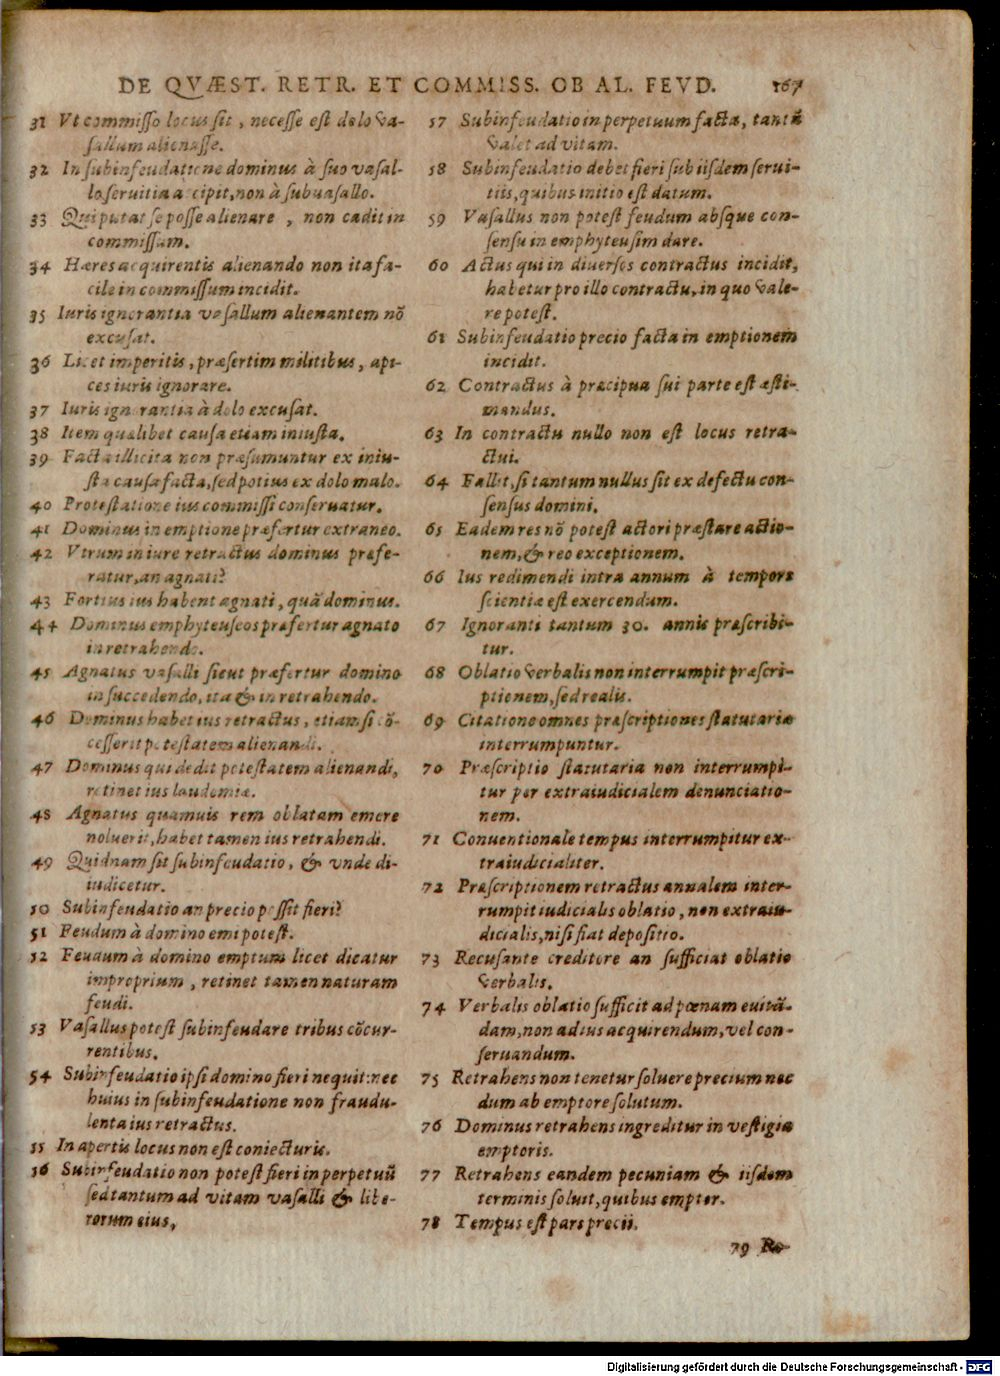 DE QVÆST. RETR. ET COMMISS. OB AL. FEVD. 167
31 Vt commisso locus sit, necesse est dolo va-
sallum alienasse.
32 In subinfeudatione dominus à suo vasal-
lo seruitia accipit, non à subuasallo.
33 Qui putat se posse alienare, non cadit in
commissum.
34 Hæres acquirentis alienando non ita fa-
cile in commissum incidit.
35 Iuris ignorantia vasallum alienantem nõ
excusat.
36 Licet imperitis, præsertim militibus, api-
ces iuris ignorare.
37 Iuris ignorantia à dolo excusat.
38 Item qualibet causa etiam iniusta.
39 Facta illicita non præsumuntur ex iniu-
sta causa facta, sed potius ex dolo malo.
40 Protestatione ius commissi conseruatur.
41 Dominus in emptione præfertur extraneo.
42 Vtrum in iure retractus dominus præfe-
ratur, an agnati?
43 Fortius ius habent agnati, quã dominus.
44 Dominus emphyteuseos præfertur agnato
in retrahendo.
45 Agnatus vasalli sicut præfertur domino
in succedendo, ita & in retrahendo.
46 Dominus habet ius retractus, etiam si cõ-
cesserit potestatem alienandi.
47 Dominus qui dedit potestatem alienandi,
retinet ius laudemiæ.
48 Agnatus quamuis rem oblatam emere
noluerit, habet tamen ius retrahendi.
49 Quidnam sit subinfeudatio, & vnde di-
iudicetur.
50 Subinfeudatio an precio possit fieri?
51 Feudum à domino emi potest.
52 Feudum à domino emptum licet dicatur
improprium, retinet tamen naturam
feudi.
53 Vasallus potest subinfeudare tribus cõcur-
rentibus.
54 Subinfeudatio ipsi domino fieri nequit: nec
huius in subinfeudatione non fraudu-
lenta ius retractus.
55 In apertis locus non est coniecturis.
56 Subinfeudatio non potest fieri in perpetuũ
sed tantum ad vitam vasalli & libe-
rorum eius,
57 Subinfeudatio in perpetuum facta, tantũ
valet ad vitam.
58 Subinfeudatio debet fieri sub iisdem serui-
tiis, quibus initio est datum.
59 Vasallus non potest feudum absque con-
sensu in emphyteusim dare.
60 Actus qui in diuersos contractus incidit,
habetur pro illo contractu, in quo vale-
re potest.
61 Subinfeudatio precio facta in emptionem
incidit.
62 Contractus à præcipua sui parte est æsti-
mandus.
63 In contractu nullo non est locus retra-
ctui.
64 Fallit, si tantum nullus sit ex defectu con-
sensus domini.
65 Eadem res nõ potest actori præstare actio-
nem, & reo exceptionem.
66 Ius redimendi intra annum à tempore
scientiæ est exercendum.
67 Ignoranti tantum 30. annis præscribi-
tur.
68 Oblatio verbalis non interrumpit præscri-
ptionem, sed realis.
69 Citatione omnes præscriptiones statutariæ
interrumpuntur.
70 Præscriptio statutaria non interrumpi-
tur per extraiudicialem denunciatio-
nem.
71 Conuentionale tempus interrumpitur ex-
traiudicialiter.
72 Præscriptionem retractus annalem inter-
rumpit iudicialis oblatio, non extraiu-
dicialis, nisi fiat depositio.
73 Recusante creditore an sufficiat oblatio
verbalis.
74 Verbalis oblatio sufficit ad pœnam euitã-
dam, non ad ius acquirendum, vel con-
seruandum.
75 Retrahens non tenetur soluere precium nec
dum ab emptore solutum.
76 Dominus retrahens ingreditur in vestigia
emptoris.
77 Retrahens eandem pecuniam & iisdem
terminis soluit, quibus emptor.
78 Tempus est pars precii.
79 Re-
Digitalisierung gefördert durch die Deutsche Forschungsgemeinschaft - DFG